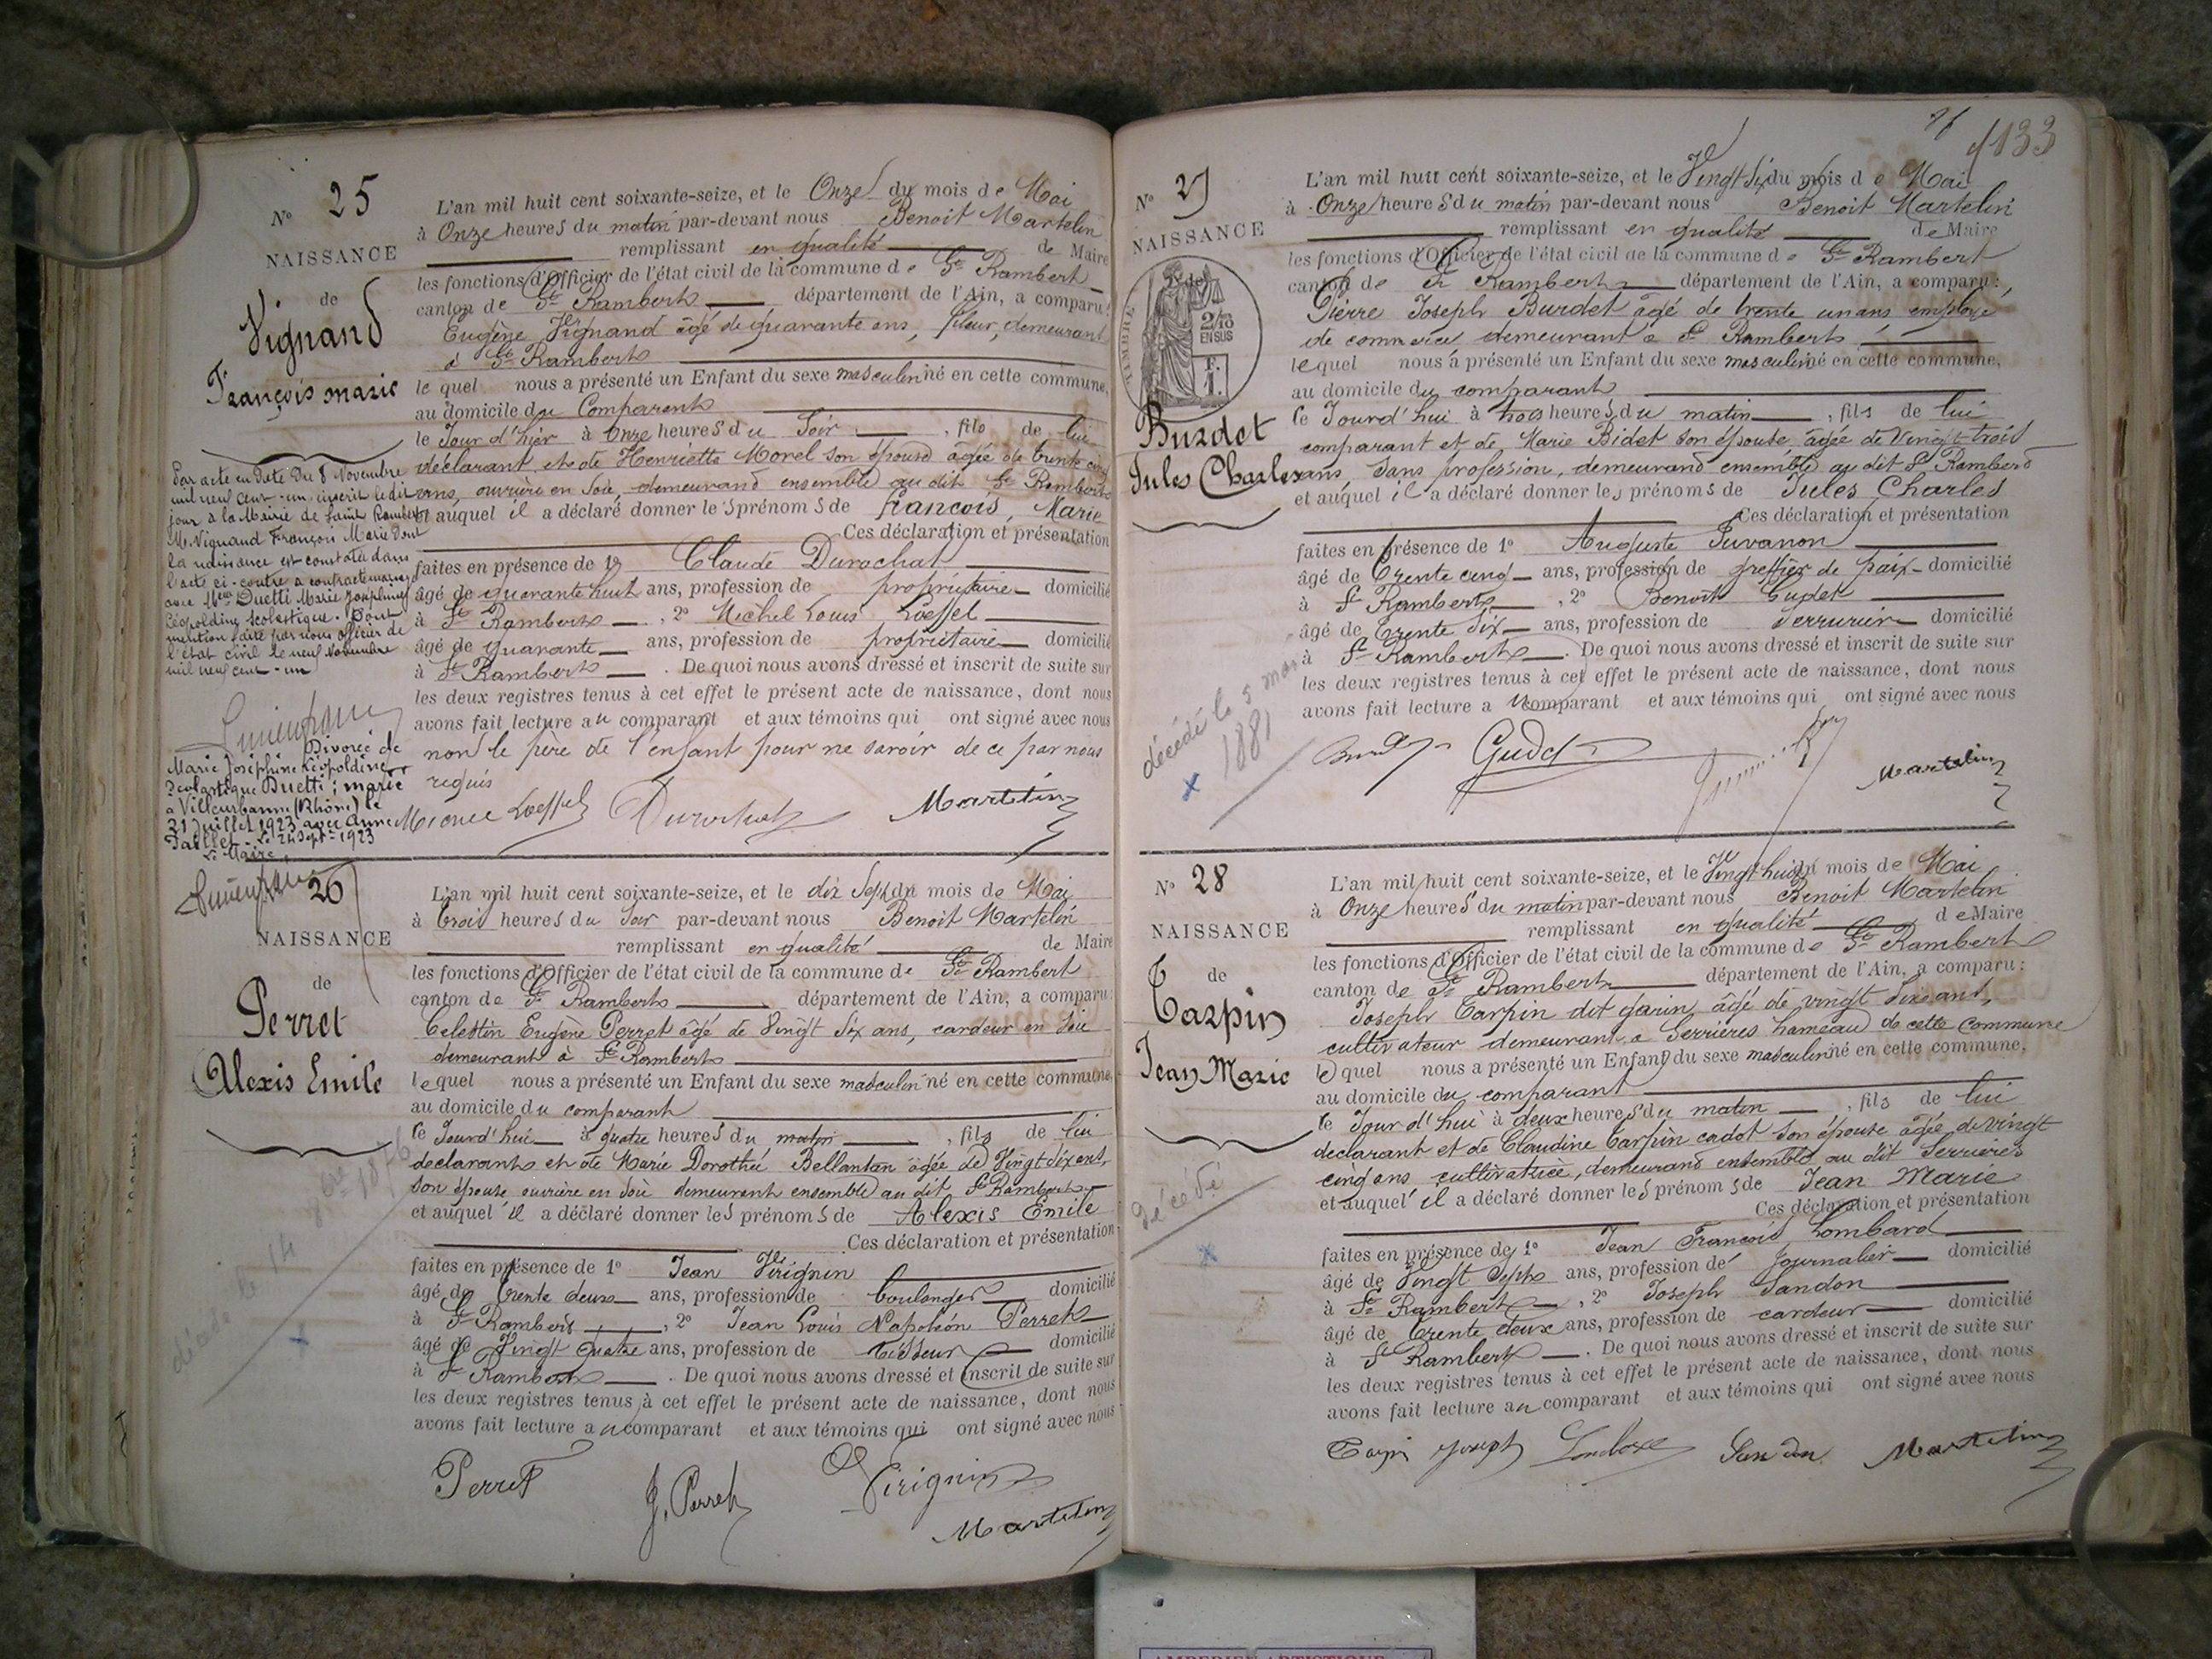 N° 25
NAISSANCE
de
Vignand
François Marie
Par acte en date du 8 Novembre
mil neuf cent-un inscrit le dit
jour à la Mairie de Saint Rambert
M. Vignand François Marie dont
la naissance est constatée dans
l'acte ci-contre a contracté mariage
avec Melle Duetti Marie Joséphine
Léopoldine Scolastique. Dont
mention faite par nous officier de
l'état civil le neuf Novembre
mil neuf cent-un
Divorcé de
Marie Joséphine Léopoldine
Scolastique Duetti ; marié
à Villeurbanne (Rhône) le
21 Juillet 1923 avec Anne
Le 24 Sept 1923
Le Maire,
L'an mil huit cent soixante-seize, et le Onze du mois de Mai
à Onze heures du matin par-devant nous Benoit Martelin
remplissant en qualité de Maire
les fonctions d'Officier de l'état civil de la commune de St Rambert
canton de St Rambert département de l'Ain, a comparu:
Eugène Vignand âgé de quarante ans, fileur, demeurant
à St Rambert
lequel nous a présenté un Enfant du sexe masculin né en cette commune,
au domicile du Comparant
le Jour d'hier à Onze heures du Soir, fils de lui
déclarant et de Henriette Morel son épouse âgée de trente cinq
ans, ouvrière en Soie, demeurand ensemble au dit St Rambert
et auquel il a déclaré donner les prénoms de François, Marie
Ces déclaration et présentation
faites en présence de 1° Claude Durochat
âgé de quarante huit ans, profession de propriétaire domicilié
à St Rambert, 2° Michel Louis Loeffel
âgé de quarante ans, profession de propriétaire domicilié
à St Rambert. De quoi nous avons dressé et inscrit de suite sur
les deux registres tenus à cet effet le présent acte de naissance, dont nous
avons fait lecture au comparant et aux témoins qui ont signé avec nous
non le père de l'enfant pour ne savoir de ce par nous
requis
Loeffel Durochat Martelin
26
NAISSANCE
de
Perret
Alexis Emile
décédé le 14
bre 1876
L'an mil huit cent soixante-seize, et le dix Sept du mois de Mai
à trois heures du Soir par-devant nous Benoit Martelin
remplissant en qualité de Maire
les fonctions d'Officier de l'état civil de la commune de St Rambert
canton de St Rambert département de l'Ain, a comparu:
Celestin Eugène Perret âgé de Vingt Six ans, cardeur en Soie
demeurant à St Rambert
lequel nous a présenté un Enfant du sexe masculin né en cette commune,
au domicile du comparant
le Jourd'hui à quatre heures du matin, fils de lui
declarant et de Marie Dorothée Bellantan âgée de Vingt dix ans,
son épouse ouvrière en Soie demeurant ensemble au dit St Rambert
et auquel il a déclaré donner les prénoms de Alexis Emile
Ces déclaration et présentation
faites en présence de 1° Jean Virignin
âgé de trente deux ans, profession de boulanger domicilié
à St Rambert, 2° Jean Louis Napoléon Perret
âgé de Vingt quatre ans, profession de tisseur domicilié
à St Rambert. De quoi nous avons dressé et inscrit de suite sur
les deux registres tenus à cet effet le présent acte de naissance, dont nous
avons fait lecture au comparant et aux témoins qui ont signé avec nous
Perret J. Perret Virignin
Martelin
133
N° 27
NAISSANCE
TIMBRE
2/10
EN SUS
F.
1.
Burdet
Jules Charles
décédé le 5 mars
1881
L'an mil huit cent soixante-seize, et le Vingt Six du mois de Mai
à Onze heures du matin par-devant nous Benoit Martelin
remplissant en qualité de Maire
les fonctions d'Officier de l'état civil de la commune de St Rambert
canton de St Rambert département de l'Ain, a comparu:
Pierre Joseph Burdet âgé de trente un ans employé
de commerce demeurant à St Rambert
lequel nous a présenté un Enfant du sexe masculin né en cette commune,
au domicile du comparant
le Jourd'hui à trois heures du matin, fils de lui
comparant et de Marie Bidet son épouse âgée de Vingt-trois
ans, sans profession, demeurand ensemble au dit St Rambert
et auquel il a déclaré donner les prénoms de Jules Charles
Ces déclaration et présentation
faites en présence de 1° Auguste Juvanon
âgé de trente cinq ans, profession de greffier de paix domicilié
à St Rambert, 2° Benoit Gudet
âgé de trente Six ans, profession de Serrurier domicilié
à St Rambert. De quoi nous avons dressé et inscrit de suite sur
les deux registres tenus à cet effet le présent acte de naissance, dont nous
avons fait lecture a comparant et aux témoins qui ont signé avec nous
Gudet Martelin
N° 28
NAISSANCE
de
Tarpin
Jean Marie
Décedé
L'an mil huit cent soixante-seize, et le Vingt huit du mois de Mai
à Onze heures du matin par-devant nous Benoit Martelin
remplissant en qualité de Maire
les fonctions d'Officier de l'état civil de la commune de St Rambert
canton de St Rambert département de l'Ain, a comparu:
Joseph Tarpin dit garin, âgé de vingt Six ans,
cultivateur demeurant à Serrières hameau de cette commune
lequel nous a présenté un Enfant du sexe masculin né en cette commune,
au domicile du comparant
le Jour d'hui à deux heures du matin, fils de lui
declarant et de Claudine Tarpin cadot son épouse âgée de vingt
cinq ans cultivatrice, demeurand ensemble au dit Serrières
et auquel il a déclaré donner les prénoms de Jean Marie
Ces déclaration et présentation
faites en présence de 1° Jean François Lombard
âgé de Vingt Sept ans, profession de Journalier domicilié
à St Rambert, 2° Joseph Sandon
âgé de trente deux ans, profession de cardeur domicilié
à St Rambert. De quoi nous avons dressé et inscrit de suite sur
les deux registres tenus à cet effet le présent acte de naissance, dont nous
avons fait lecture au comparant et aux témoins qui ont signé avec nous
Tarpin Joseph Sandon Martelin